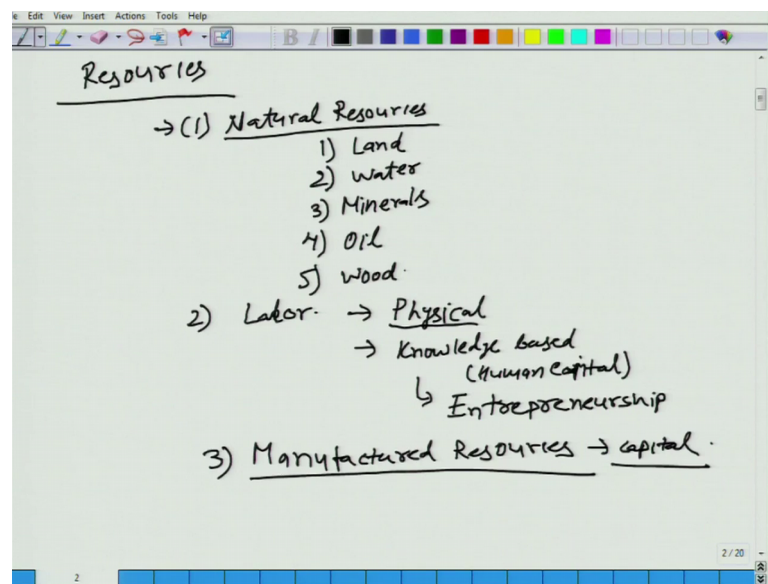 Edit View Insert Actions Tools Help
Resources
→ (1) Natural Resources
1) Land
2) Water
3) Minerals
4) Oil
5) Wood.
2) Labor. → Physical
→ Knowledge based
(Human Capital)
↳ Entrepreneurship
3) Manufactured Resources → capital.
2 / 20
2